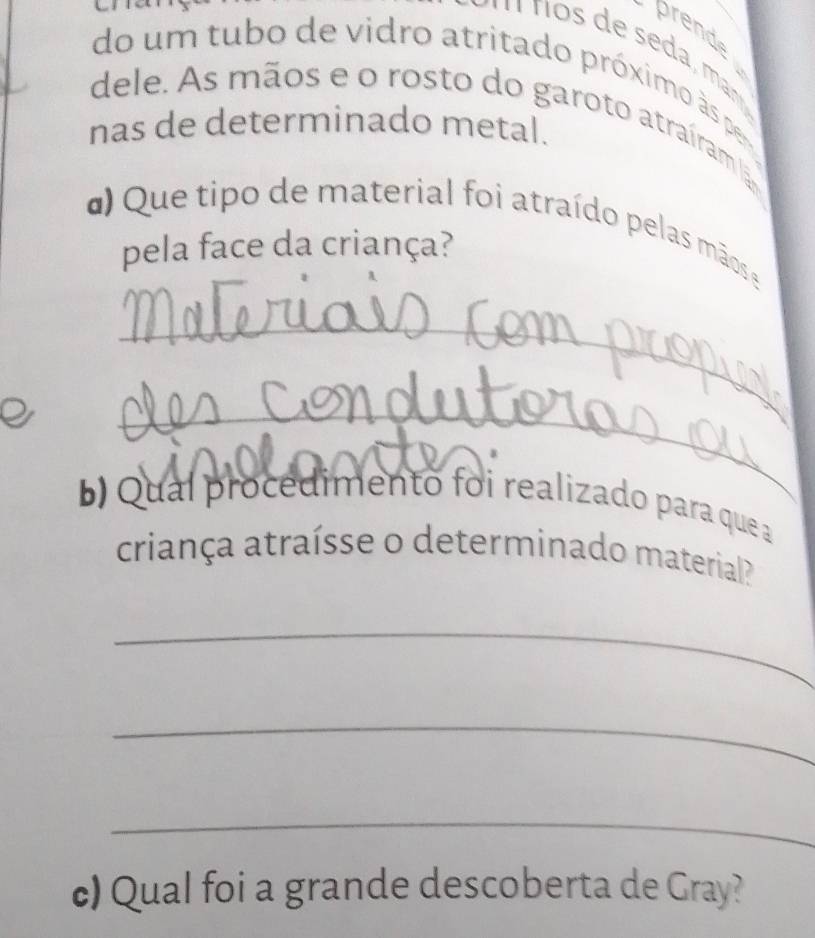 fios de seda, prende
do um tubo de vidro atritado próximo às
dele. As mãos e o rosto do garoto atraíram
nas de determinado metal.
a) Que tipo de material foi atraído pelas mãos e
pela face da criança?
Materiais com propieda
des condutoras ou
isolantes.
b) Qual procedimento foi realizado para que a
criança atraísse o determinado material?
c) Qual foi a grande descoberta de Gray?